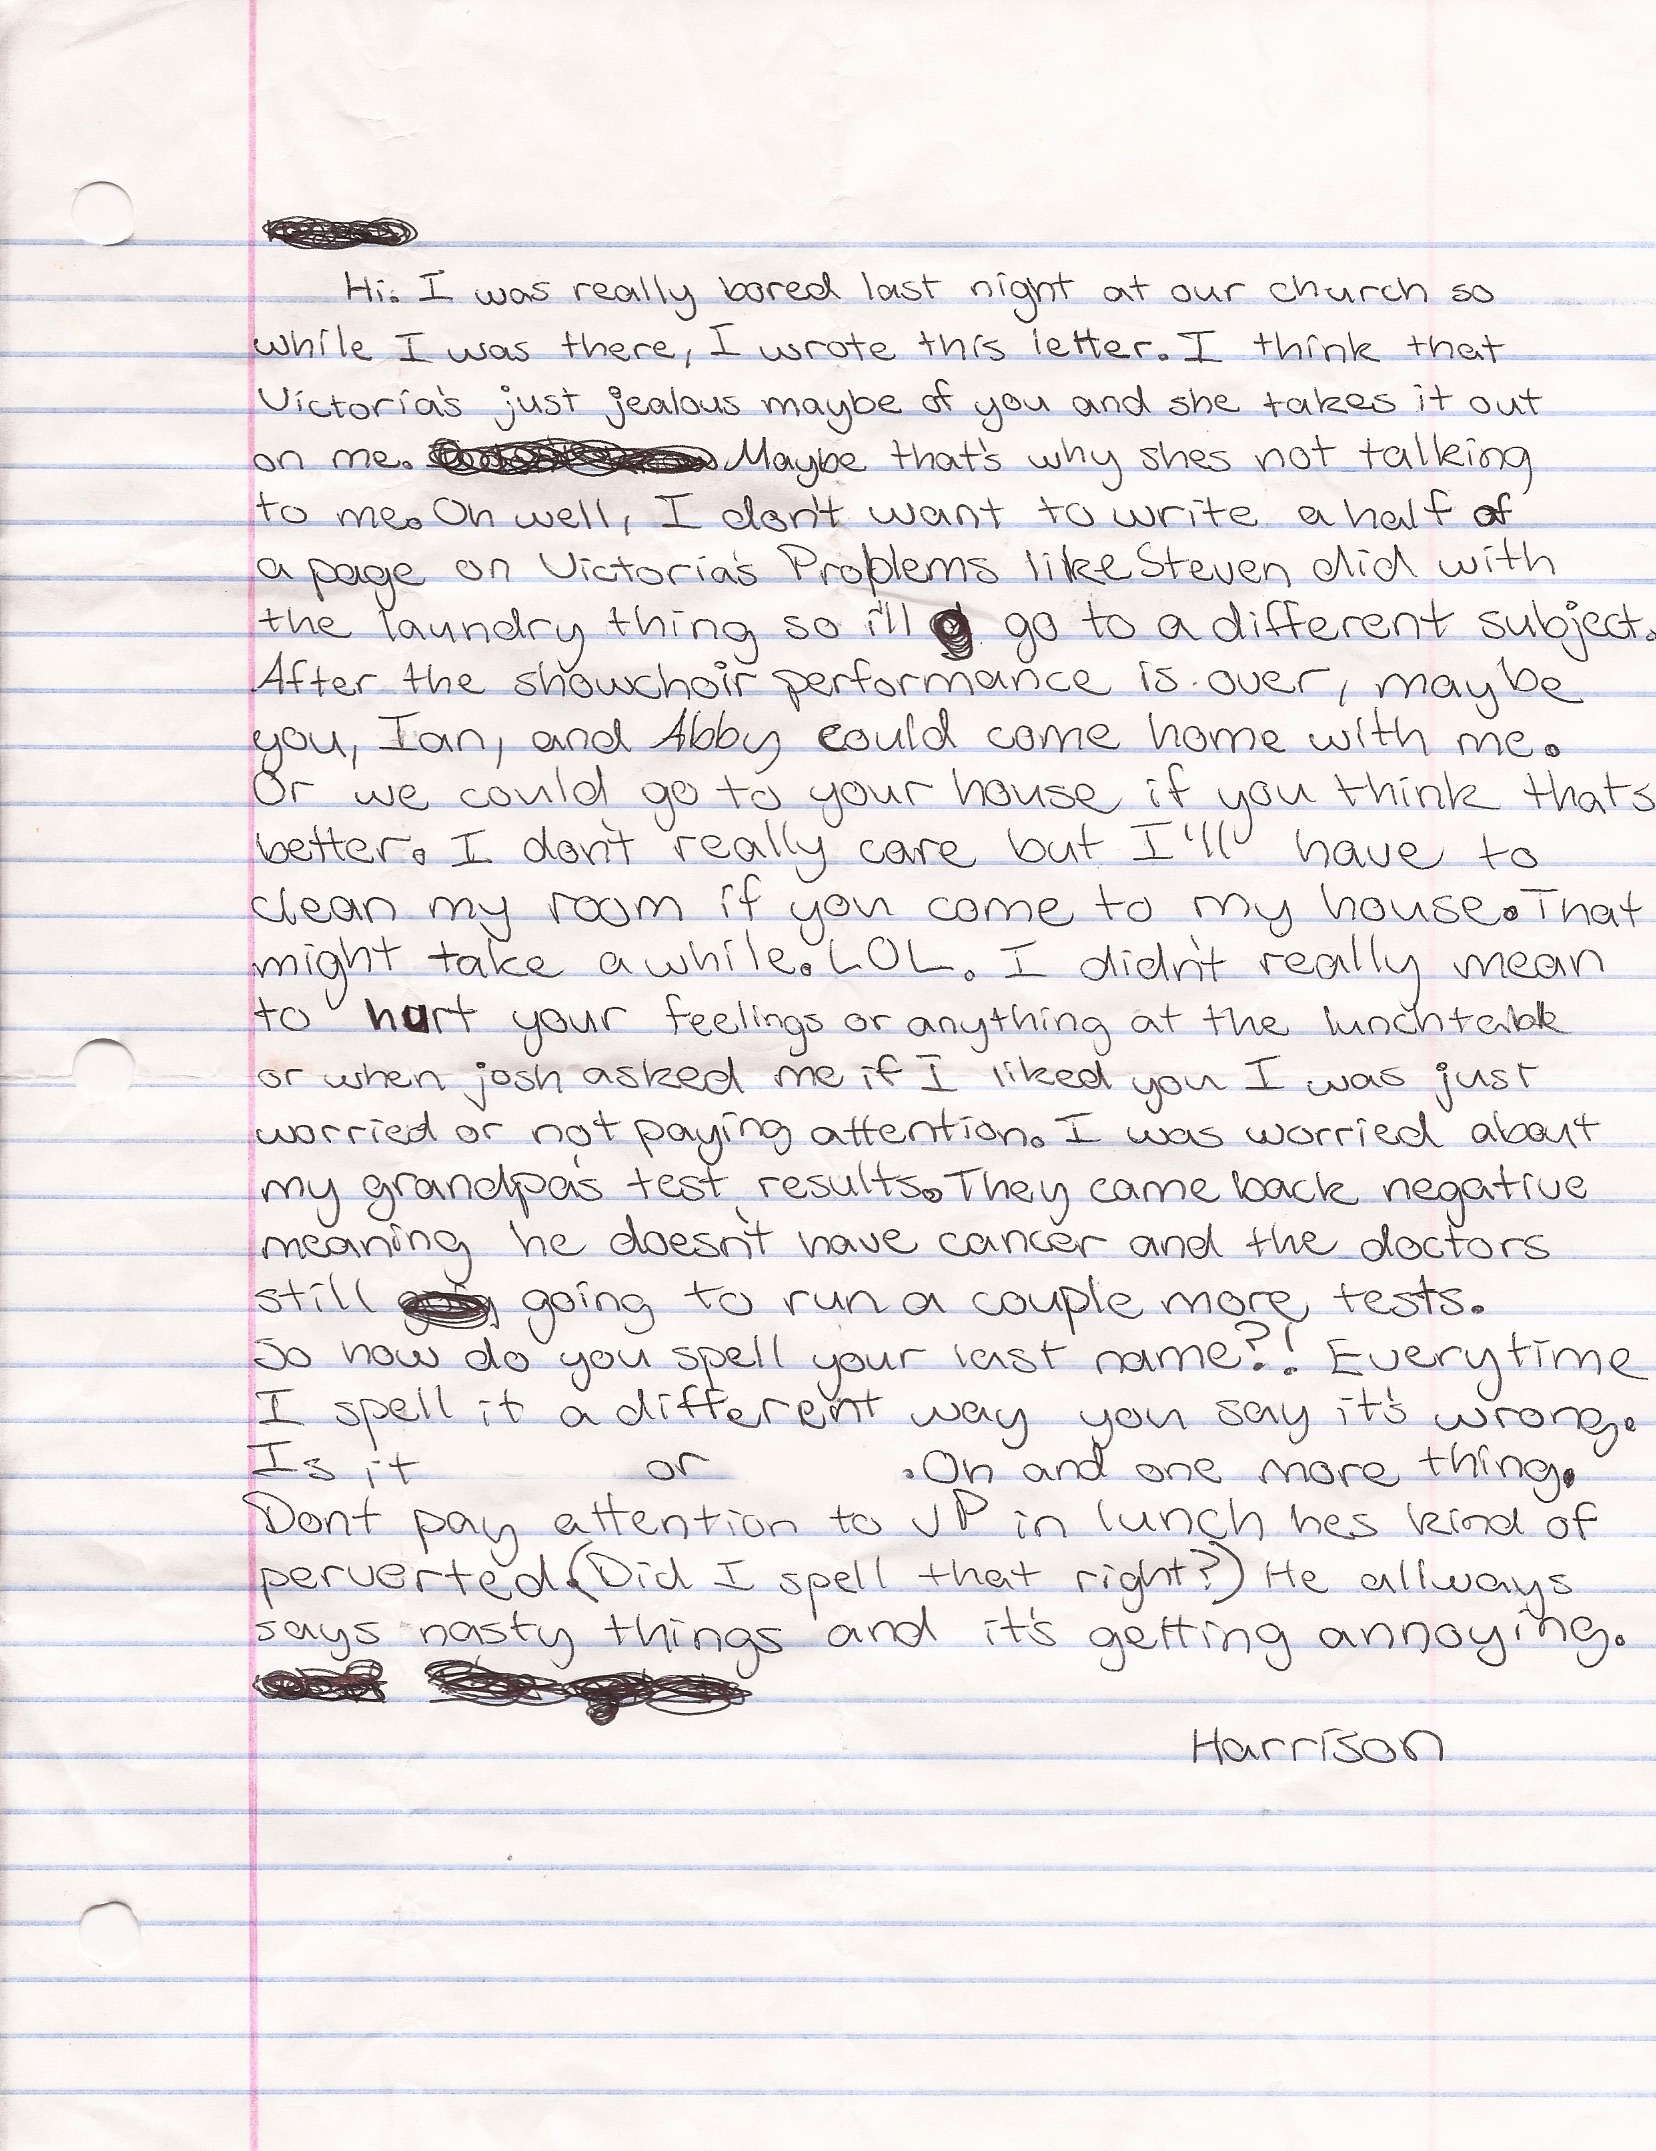 Hi. I was really bored last night at our church so
while I was there, I wrote this letter. I think that
Victoria's just jealous maybe of you and she takes it out
on me. Maybe that's why shes not talking
to me. Oh well, I don't want to write a half of
a page on Victoria's Problems like Steven did with
the laundry thing so i'll go to a different subject.
After the showchoir performance is over, maybe
you, Ian, and Abby could come home with me.
Or we could go to your house if you think thats
better. I don't really care but I'll have to
clean my room if you come to my house. That
might take a while. LOL. I didn't really mean
to hurt your feelings or anything at the lunchtable
or when josh asked me if I liked you I was just
worried or not paying attention. I was worried about
my grandpa's test results. They came back negative
meaning he doesn't have cancer and the doctors
still going to run a couple more tests.
So how do you spell your last name?! Everytime
I spell it a different way you say it's wrong.
Is it or . Oh and one more thing.
Dont pay attention to JP in lunch hes kind of
perverted. (Did I spell that right?) He allways
says nasty things and it's getting annoying.
Harrison